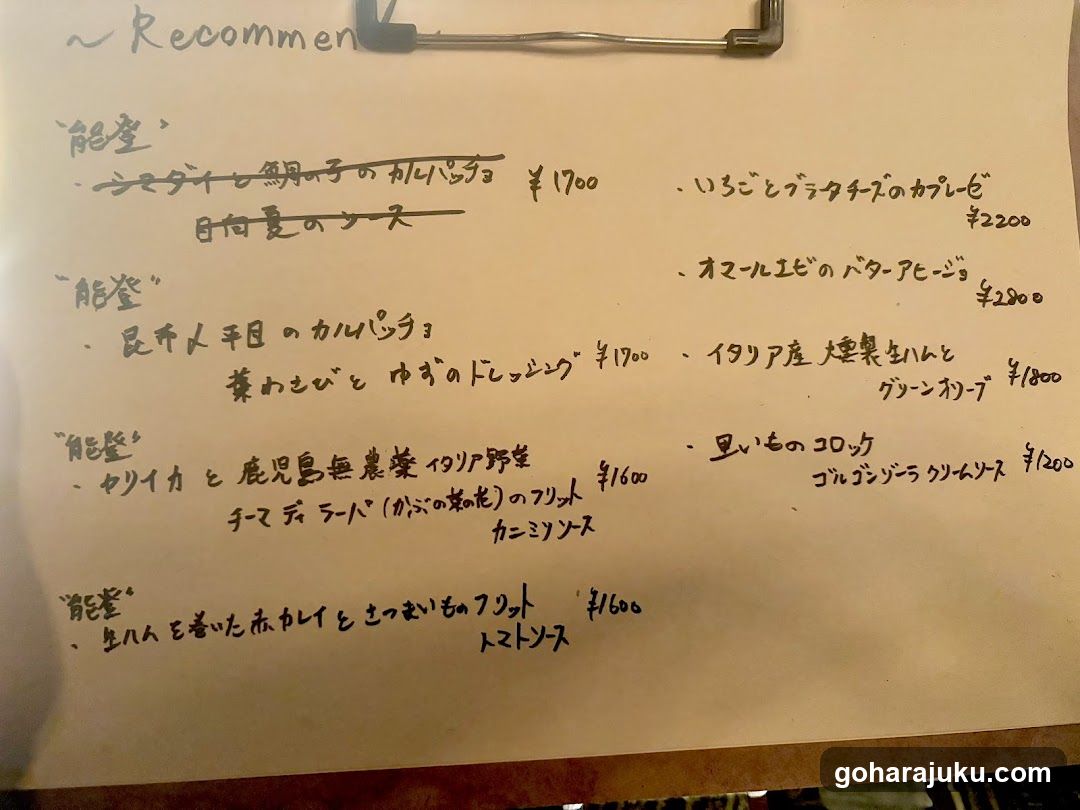 ~ Recommen
"能登"
・シマダイと鯛の子のカルパッチョ ¥1700
日向夏のソース
"能登"
・昆布〆平目のカルパッチョ
葉わさびとゆずのドレッシング ¥1700
"能登"
・ヤリイカと鹿児島無農薬イタリア野菜
チーマディラーパ(かぶの菜の花)のフリット ¥1600
カニミソソース
"能登"
・生ハムを巻いた赤カレイとさつまいものフリット ¥1600
トマトソース
・いちごとブラータチーズのカプレーゼ
¥2200
・オマールエビのバターアヒージョ
¥2800
・イタリア産燻製生ハムと
グリーンオリーブ ¥1800
・里いものコロッケ
ゴルゴンゾーラクリームソース ¥1200
goharajuku.com